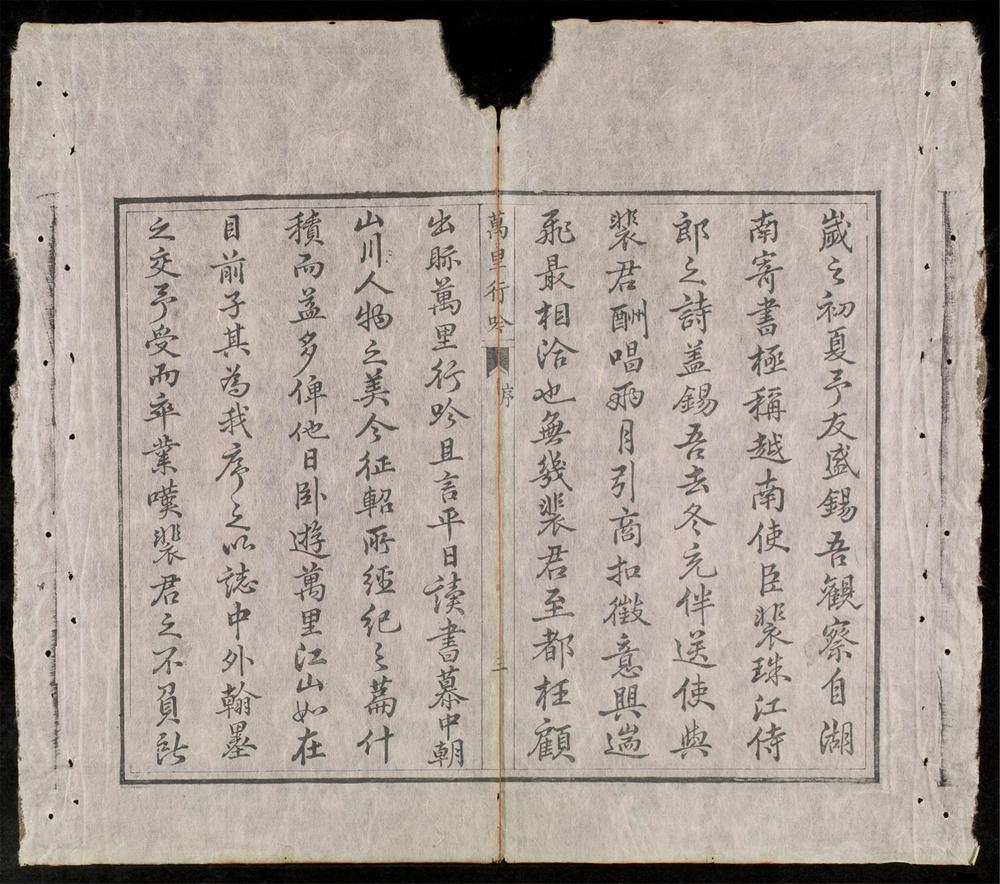 歲之初夏予友盛錫吾觀察自湖
南寄書極稱越南使臣裴珠江侍
郎之詩盖錫吾去冬充伴送使與
裴君酬唱兩月引商扣徵意興遄
飛最相洽也無幾裴君至都枉顧
萬里行吟 序 三
出眎萬里行吟且言平日讀書慕中朝
山川人物之美今征軺所經紀之篇什
積而益多俾他日卧遊萬里江山如在
目前子其為我序之以誌中外翰墨
之交予受而卒業嘆裴君之不負所